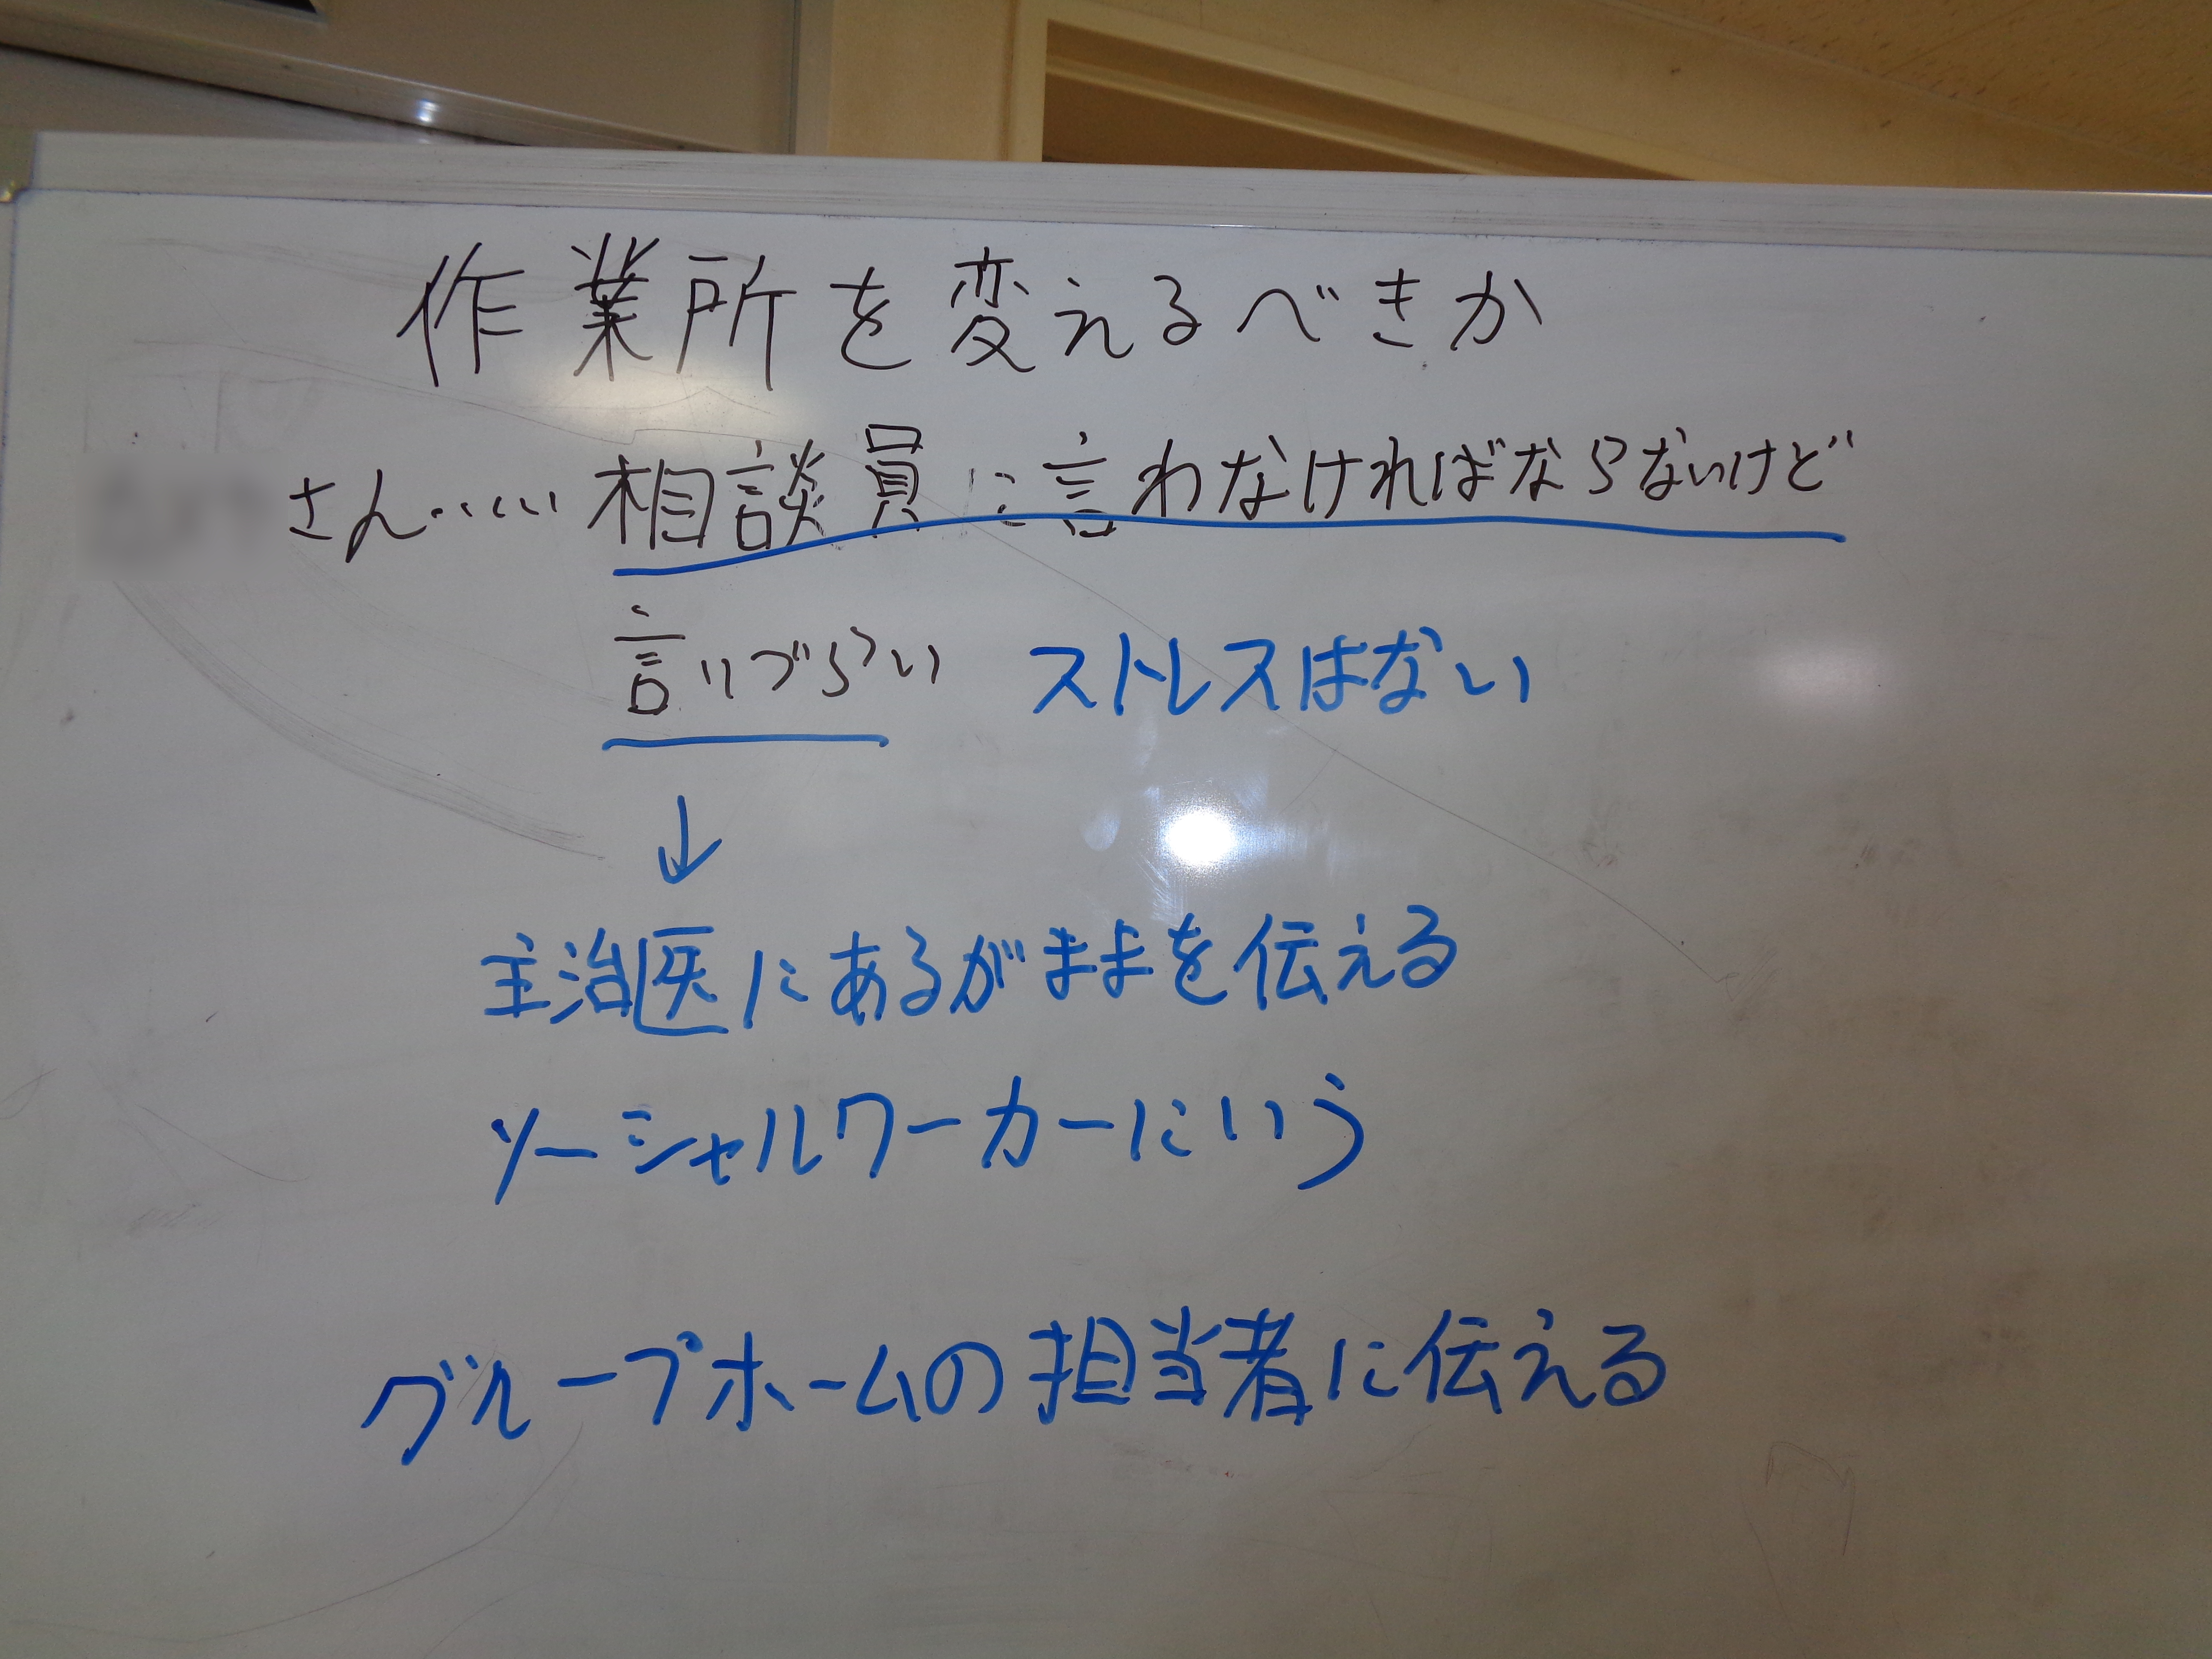 作業所を変えるべきか
さん……相談員に言わなければならないけど
言いづらい ストレスはない
↓
主治医にあるがままを伝える
ソーシャルワーカーにいう
グループホームの担当者に伝える